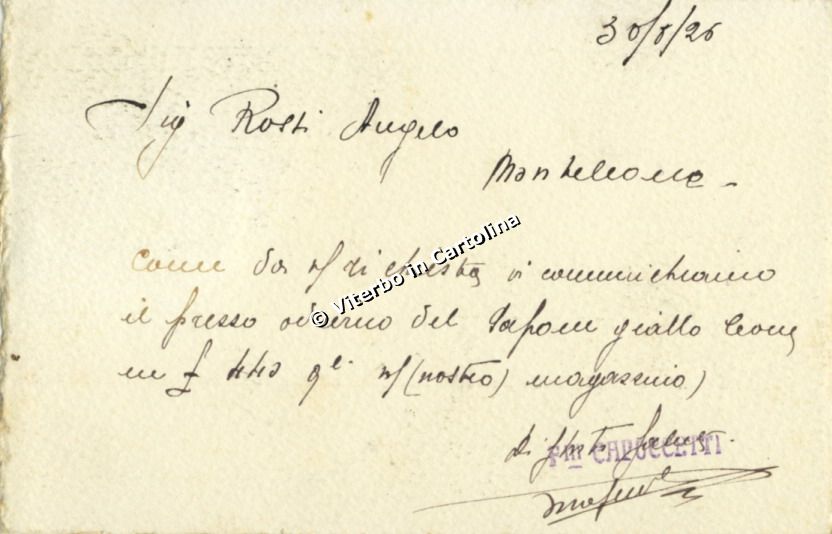 30/8/26
Sig Rosti Angelo
Monteleone -
Come da v/ richiesta vi communichiamo
il presso odierno del Sapone giallo Leone
in £ 440 q.li n/(nostro) magazzino)
F.lli CAPOCCETTI
© Viterbo in Cartolina